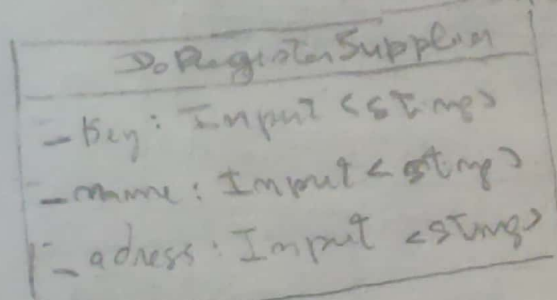 DoRegisterSupplier
- Key: Input <string>
- name: Input <string>
- adress: Input <string>